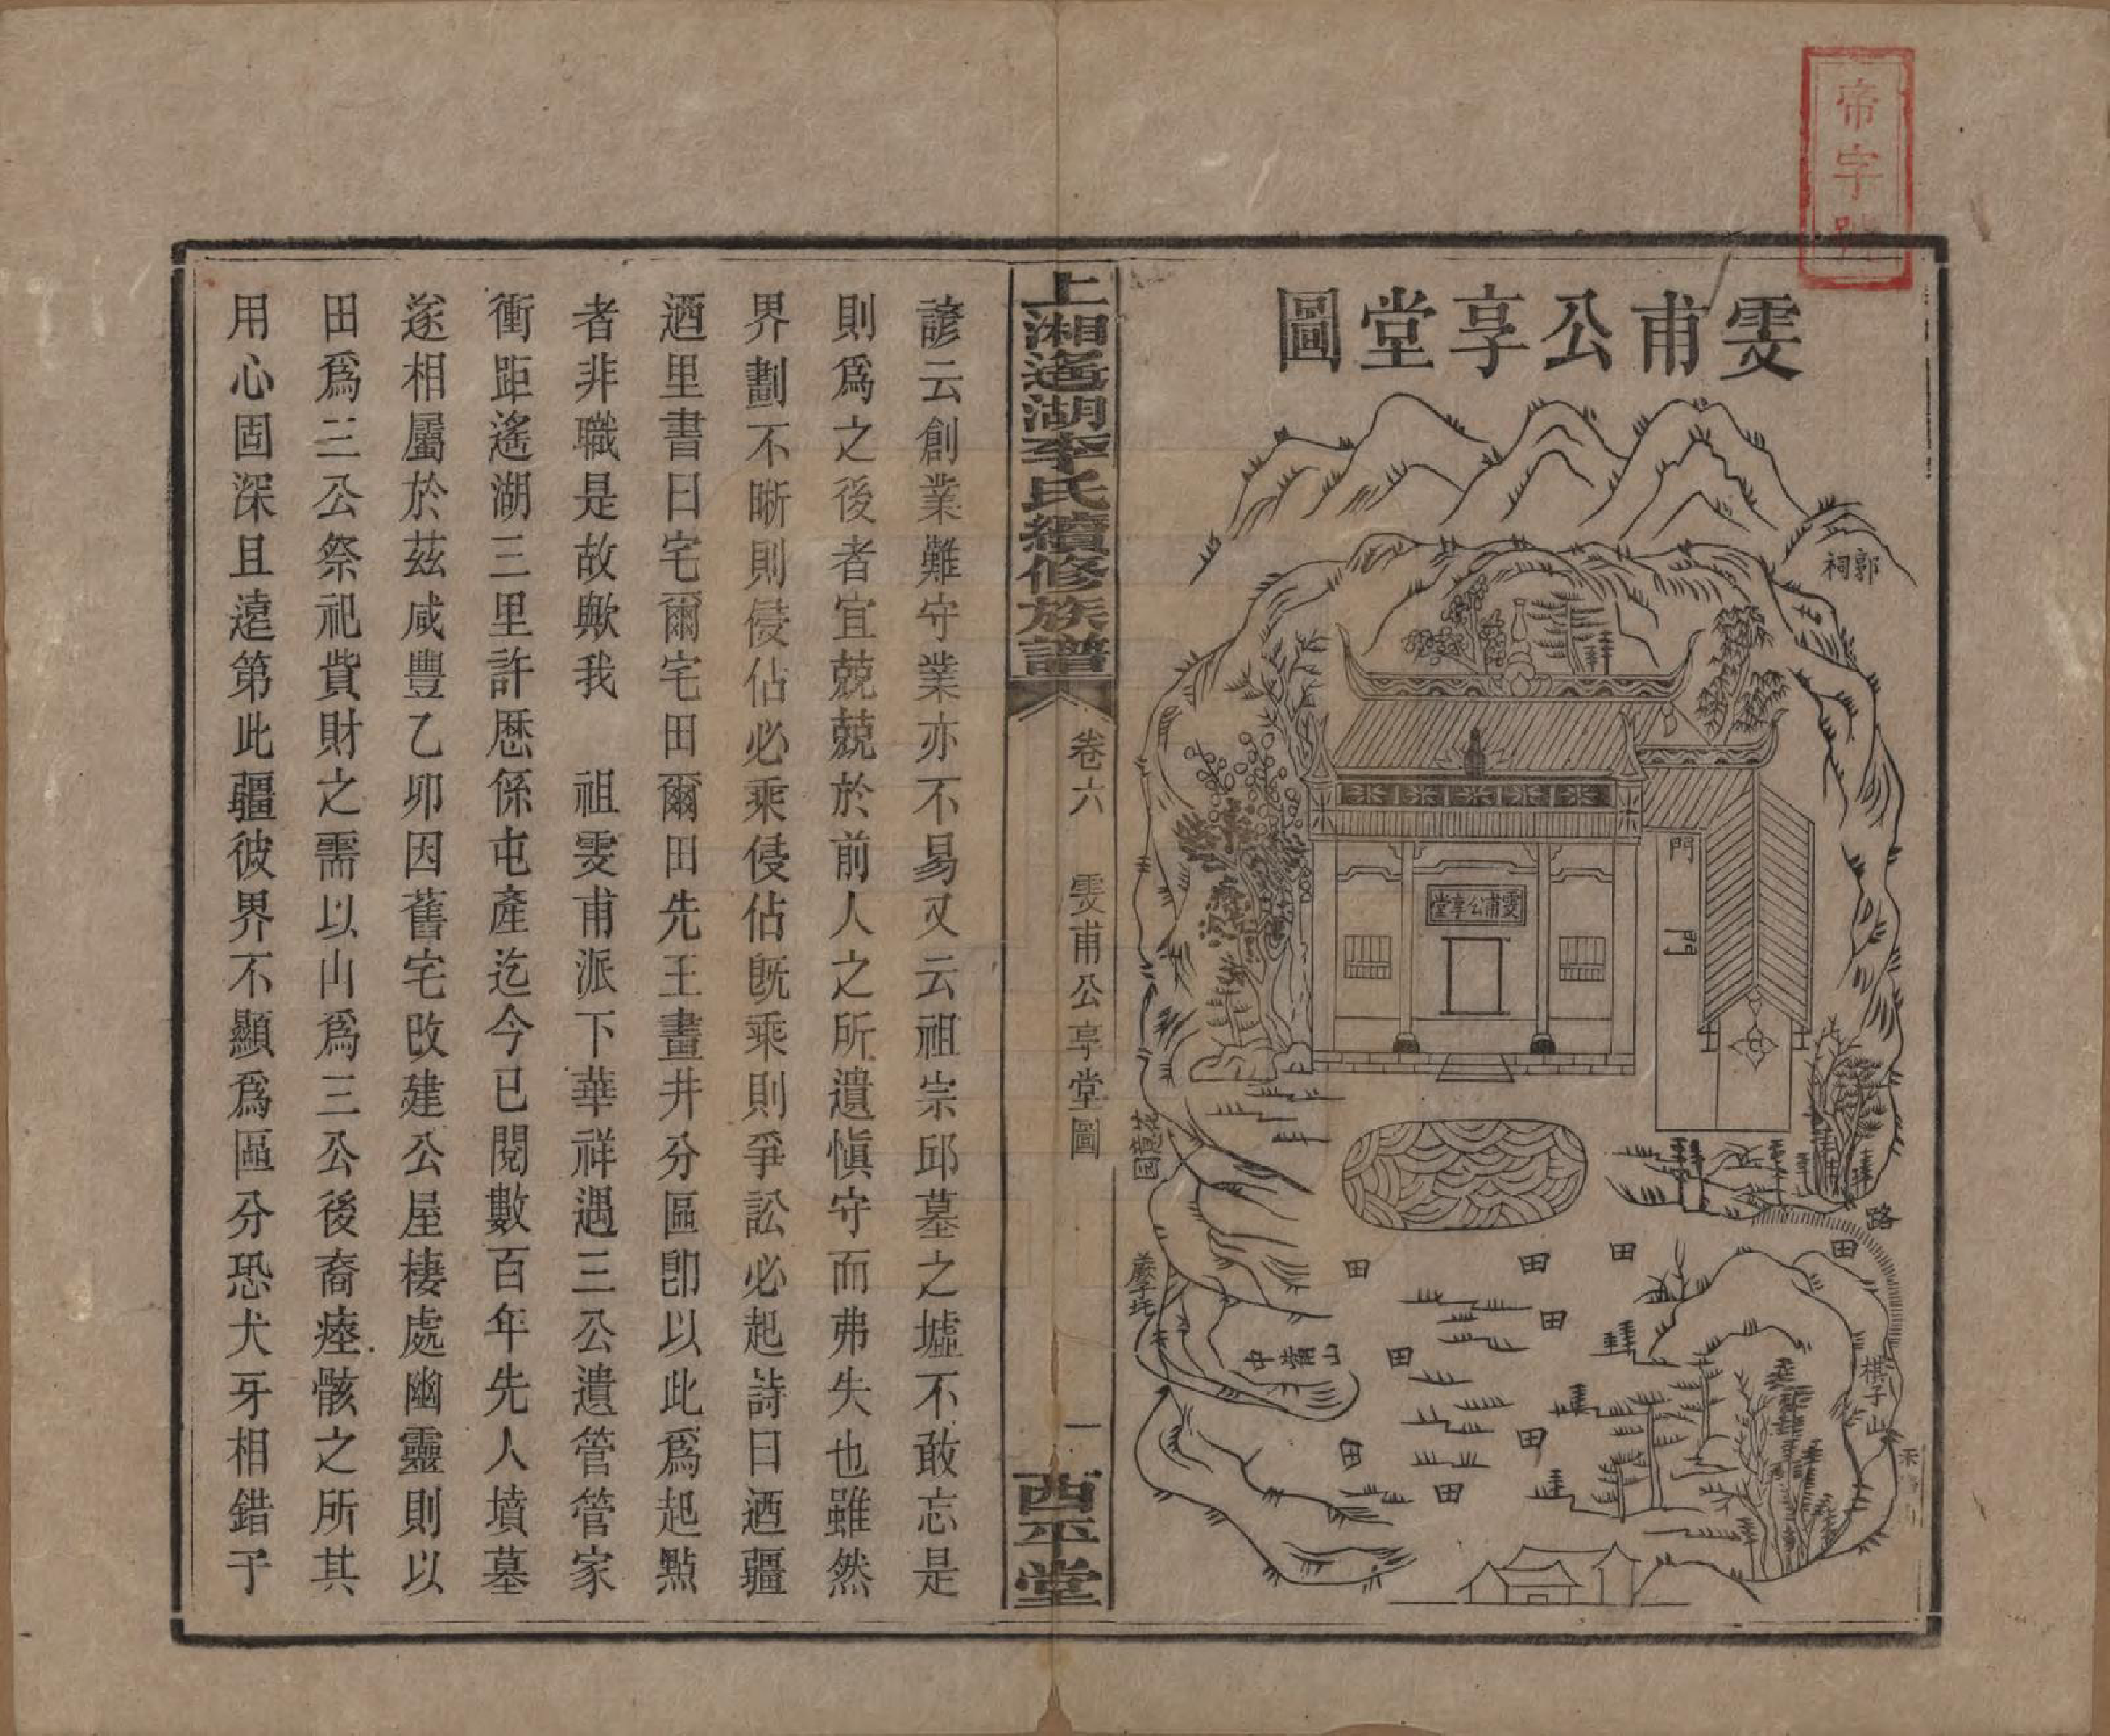 帝字號
雯甫公享堂圖
郭祠
雯甫公享堂
門
門
路
田
田
田
田
田
田
田
田
田
棋子山
中嘴山
上湘遙湖李氏續修族譜
卷六
雯甫公享堂圖
一
西平堂
諺云創業難守業亦不易又云祖宗邱墓之墟不敢忘是
則爲之後者宜兢兢於前人之所遺慎守而弗失也雖然
界劃不晰則侵佔必乘侵佔旣乘則爭訟必起詩曰迺疆
迺里書曰宅爾宅田爾田先王畫井分區卽以此爲起點
者非職是故歟我　祖雯甫派下華祥遇三公遺管管家
衝距遙湖三里許歷係屯產迄今已閱數百年先人墳墓
遂相屬於茲咸豐乙卯因舊宅改建公屋棲處幽靈則以
田爲三公祭祀貲財之需以山爲三公後裔瘞骸之所其
用心固深且遠第此疆彼界不顯爲區分恐犬牙相錯于